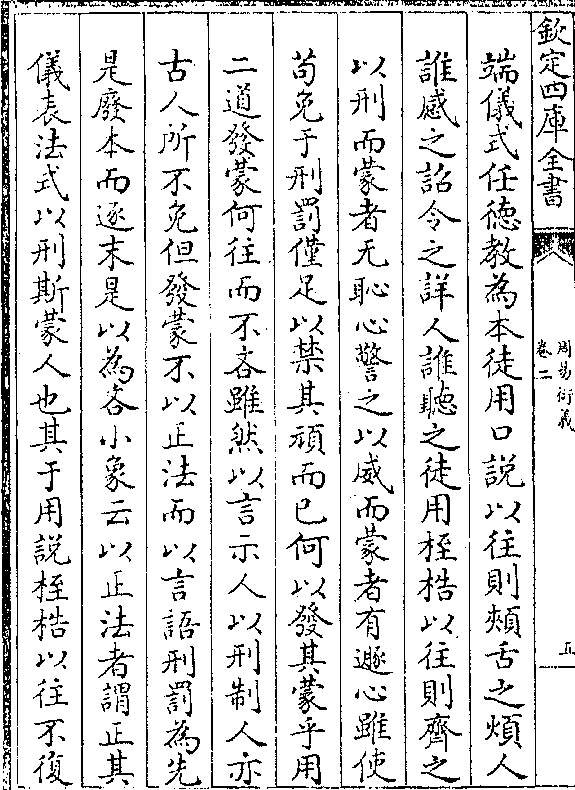 欽定四庫全書
周易衍義
卷二
五
端儀式任德教為本徒用口說以往則頰舌之煩人
誰感之詔令之詳人誰聽之徒用桎梏以往則齊之
以刑而蒙者无恥心警之以威而蒙者有遯心雖使
苟免于刑罰僅足以禁其頑而已何以發其蒙乎用
二道發蒙何往而不吝雖然以言示人以刑制人亦
古人所不免但發蒙不以正法而以言語刑罰為先
是廢本而逐末是以為吝小象云以正法者謂正其
儀表法式以刑斯蒙人也其于用說桎梏以往不復